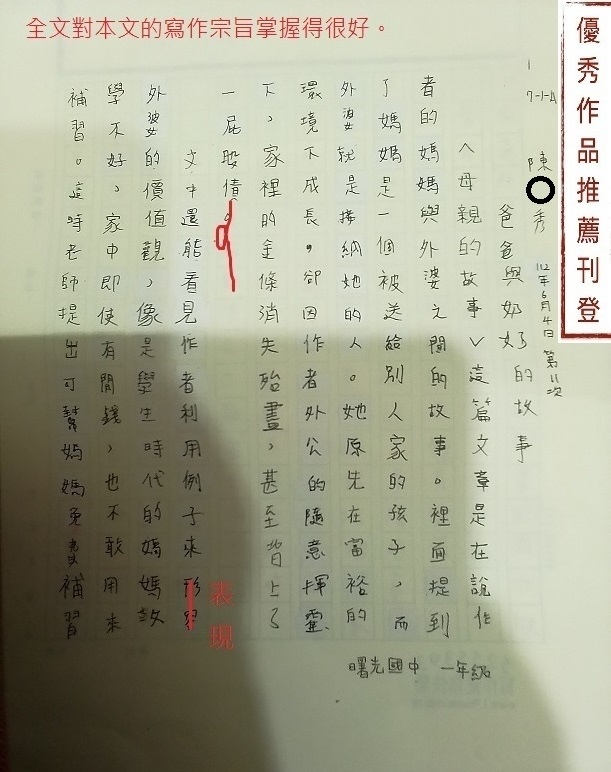 全文對本文的寫作宗旨掌握得很好。
優秀作品推薦刊登
7-1-A 陳秀 112年6月4日 第11次
爸爸與奶奶的故事
〈母親的故事〉這篇文章是在說作
者的媽媽與外婆之間的故事。裡面提到
了媽媽是一個被送給別人家的孩子，而
外婆就是接納她的人。她原先在富裕的
環境下成長，卻因作者外公的隨意揮霍
下，家裡的金條消失殆畫，甚至背上了
一屁股債。
文中還能看見作者利用例子來形容
表現
外婆的價值觀，像是學生時代的媽媽數
學不好，家中即使有閒錢，也不敢用來
補習。這時老師提出可幫媽媽免費補習
曙光國中 一年級